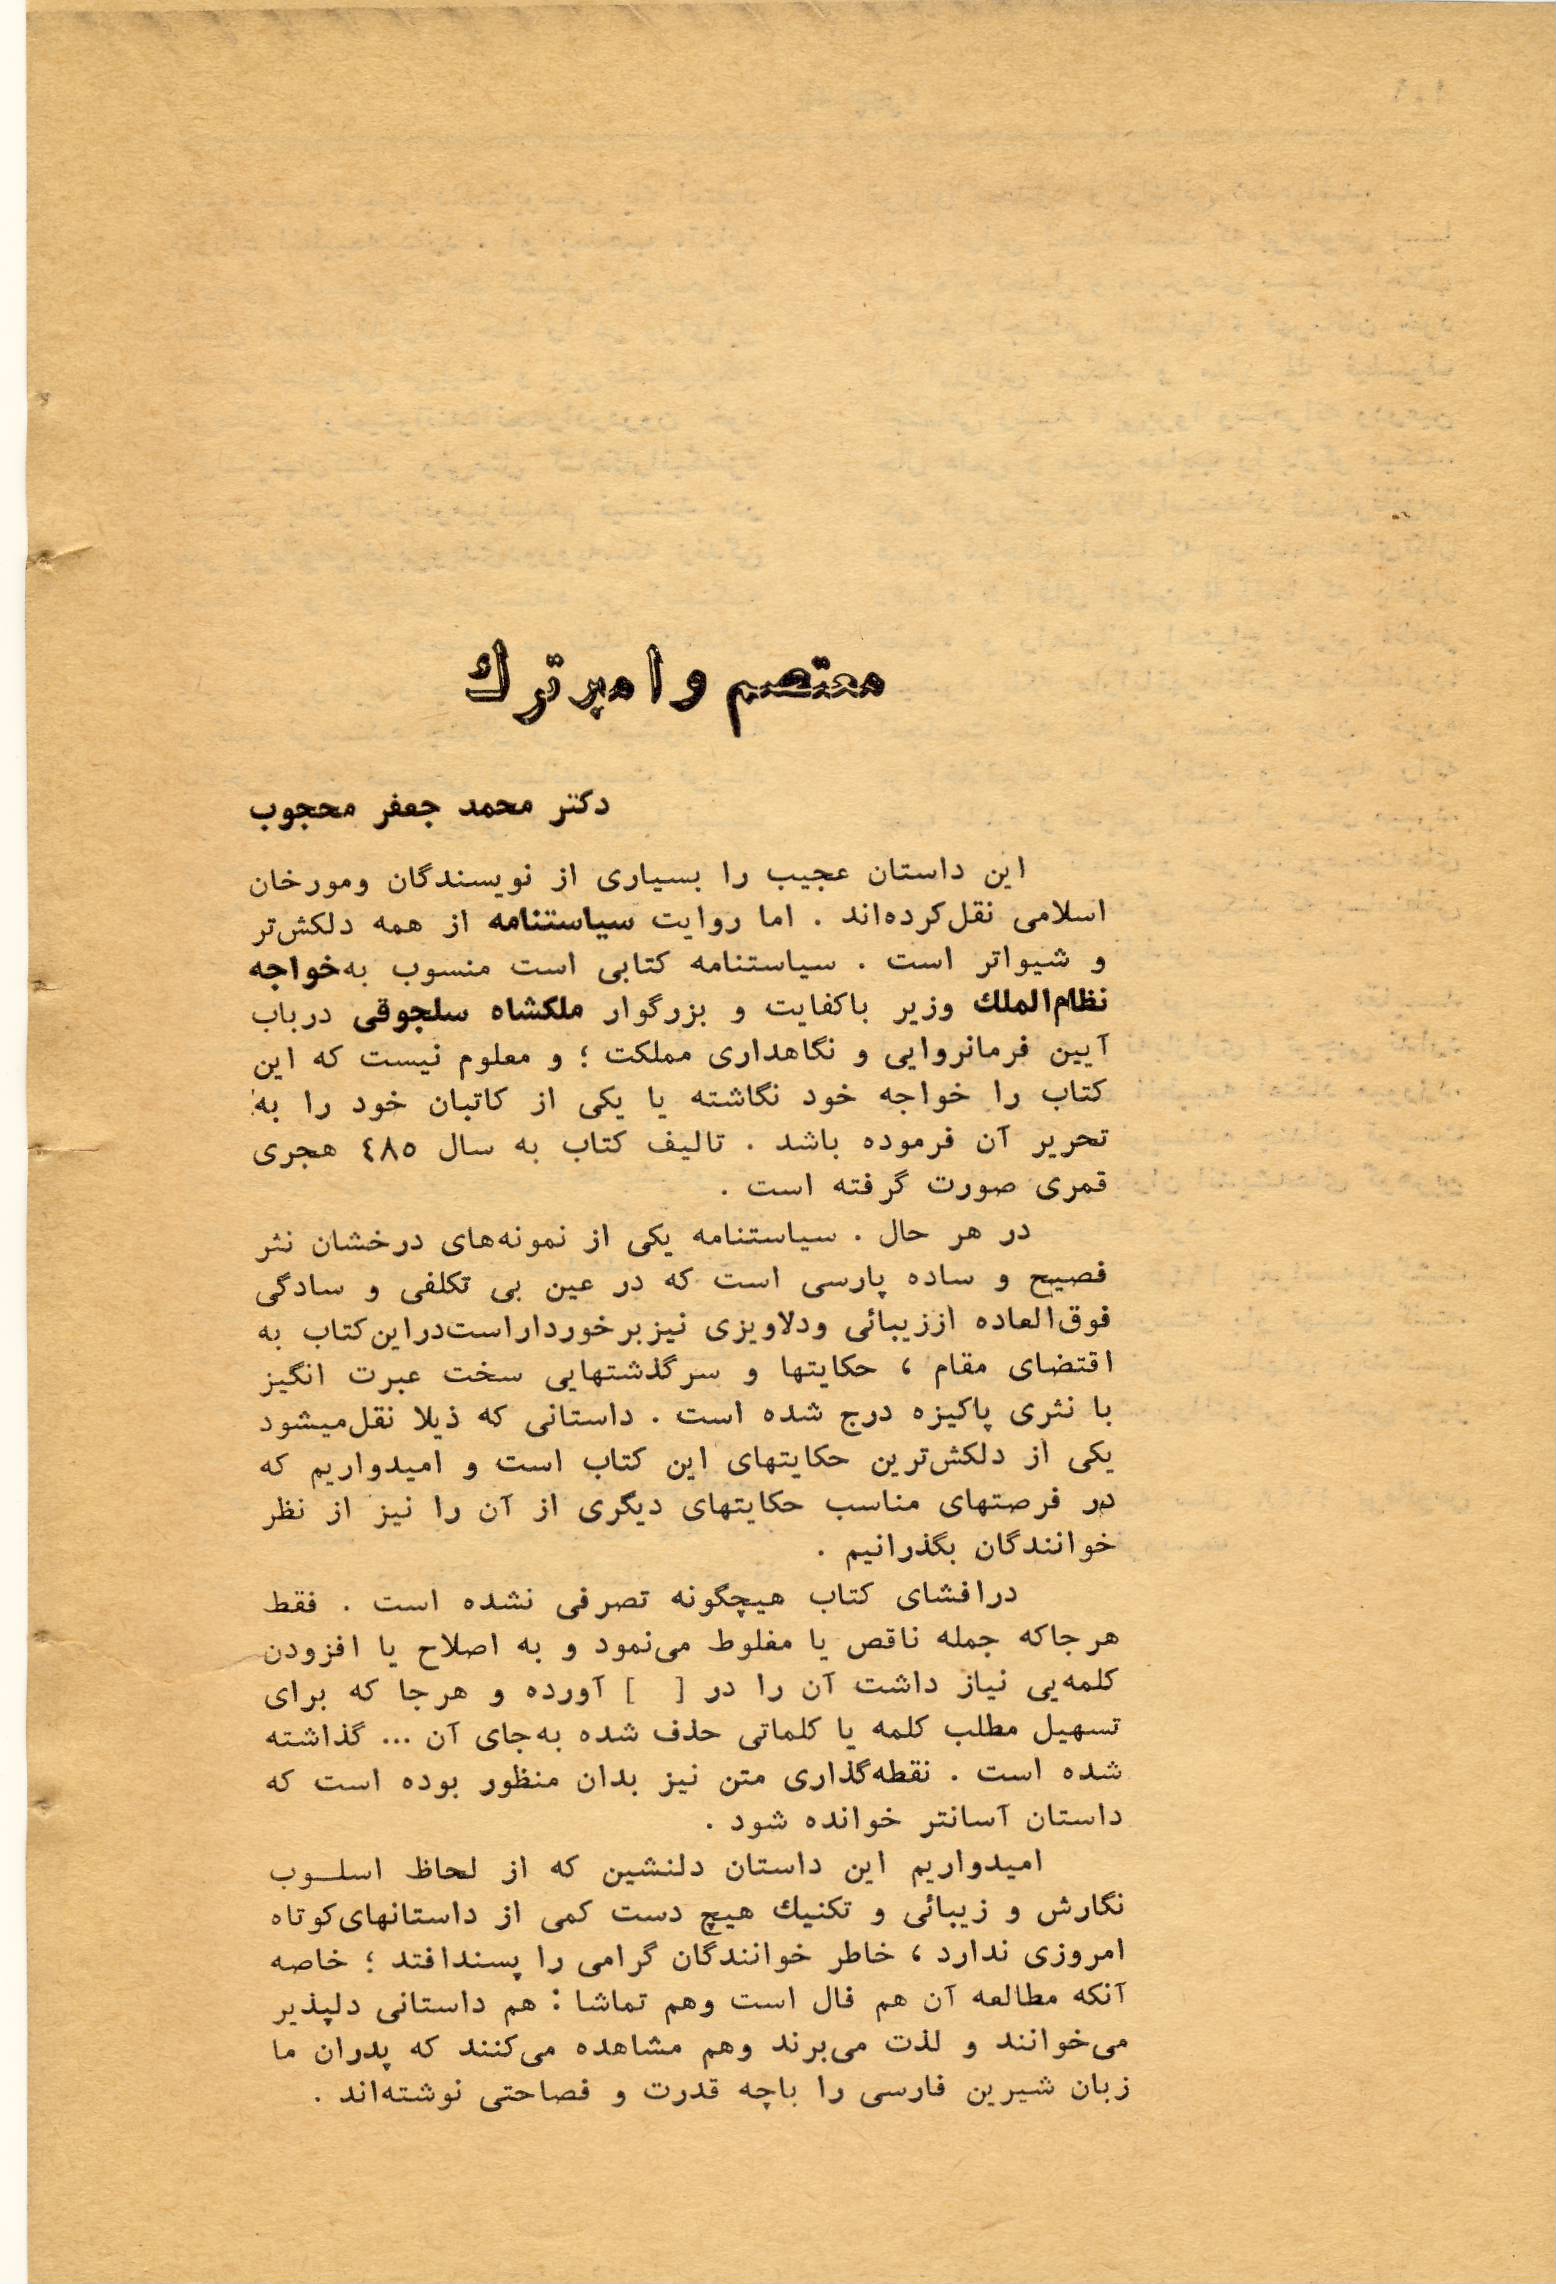 معتصم و امیر ترك
دكتر محمد جعفر محجوب
این داستان عجیب را بسیاری از نویسندگان ومورخان
اسلامی نقل‌کرده‌اند . اما روایت سیاستنامه از همه دلکش‌تر
و شیواتر است . سیاستنامه کتابی است منسوب به‌خواجه
نظام‌الملك وزیر باکفایت و بزرگوار ملکشاه سلجوقی درباب
آیین فرمانروایی و نگاهداری مملکت ؛ و معلوم نیست که این
کتاب را خواجه خود نگاشته یا یکی از کاتبان خود را به
تحریر آن فرموده باشد . تالیف کتاب به سال ٤٨٥ هجری
قمری صورت گرفته است .
در هر حال . سیاستنامه یکی از نمونه‌های درخشان نثر
فصیح و ساده پارسی است که در عین بی تکلفی و سادگی
فوق‌العاده اززیبائی ودلاویزی نیزبرخورداراست‌دراین‌کتاب به
اقتضای مقام ، حکایتها و سرگذشتهایی سخت عبرت انگیز
با نثری پاکیزه درج شده است . داستانی که ذیلا نقل‌میشود
یکی از دلکش‌ترین حکایتهای این کتاب است و امیدواریم که
در فرصتهای مناسب حکایتهای دیگری از آن را نیز از نظر
خوانندگان بگذرانیم .
درافشای کتاب هیچگونه تصرفی نشده است . فقط
هرجاکه جمله ناقص یا مغلوط می‌نمود و به اصلاح یا افزودن
کلمه‌یی نیاز داشت آن را در [ ] آورده و هرجا که برای
تسهیل مطلب کلمه یا کلماتی حذف شده به‌جای آن ... گذاشته
شده است . نقطه‌گذاری متن نیز بدان منظور بوده است که
داستان آسانتر خوانده شود .
امیدواریم این داستان دلنشین که از لحاظ اسلـوب
نگارش و زیبائی و تکنیك هیچ دست کمی از داستانهای‌کوتاه
امروزی ندارد ، خاطر خوانندگان گرامی را پسندافتد ؛ خاصه
آنکه مطالعه آن هم فال است وهم تماشا : هم داستانی دلپذیر
می‌خوانند و لذت می‌برند وهم مشاهده می‌کنند که پدران ما
زبان شیرین فارسی را باچه قدرت و فصاحتی نوشته‌اند .